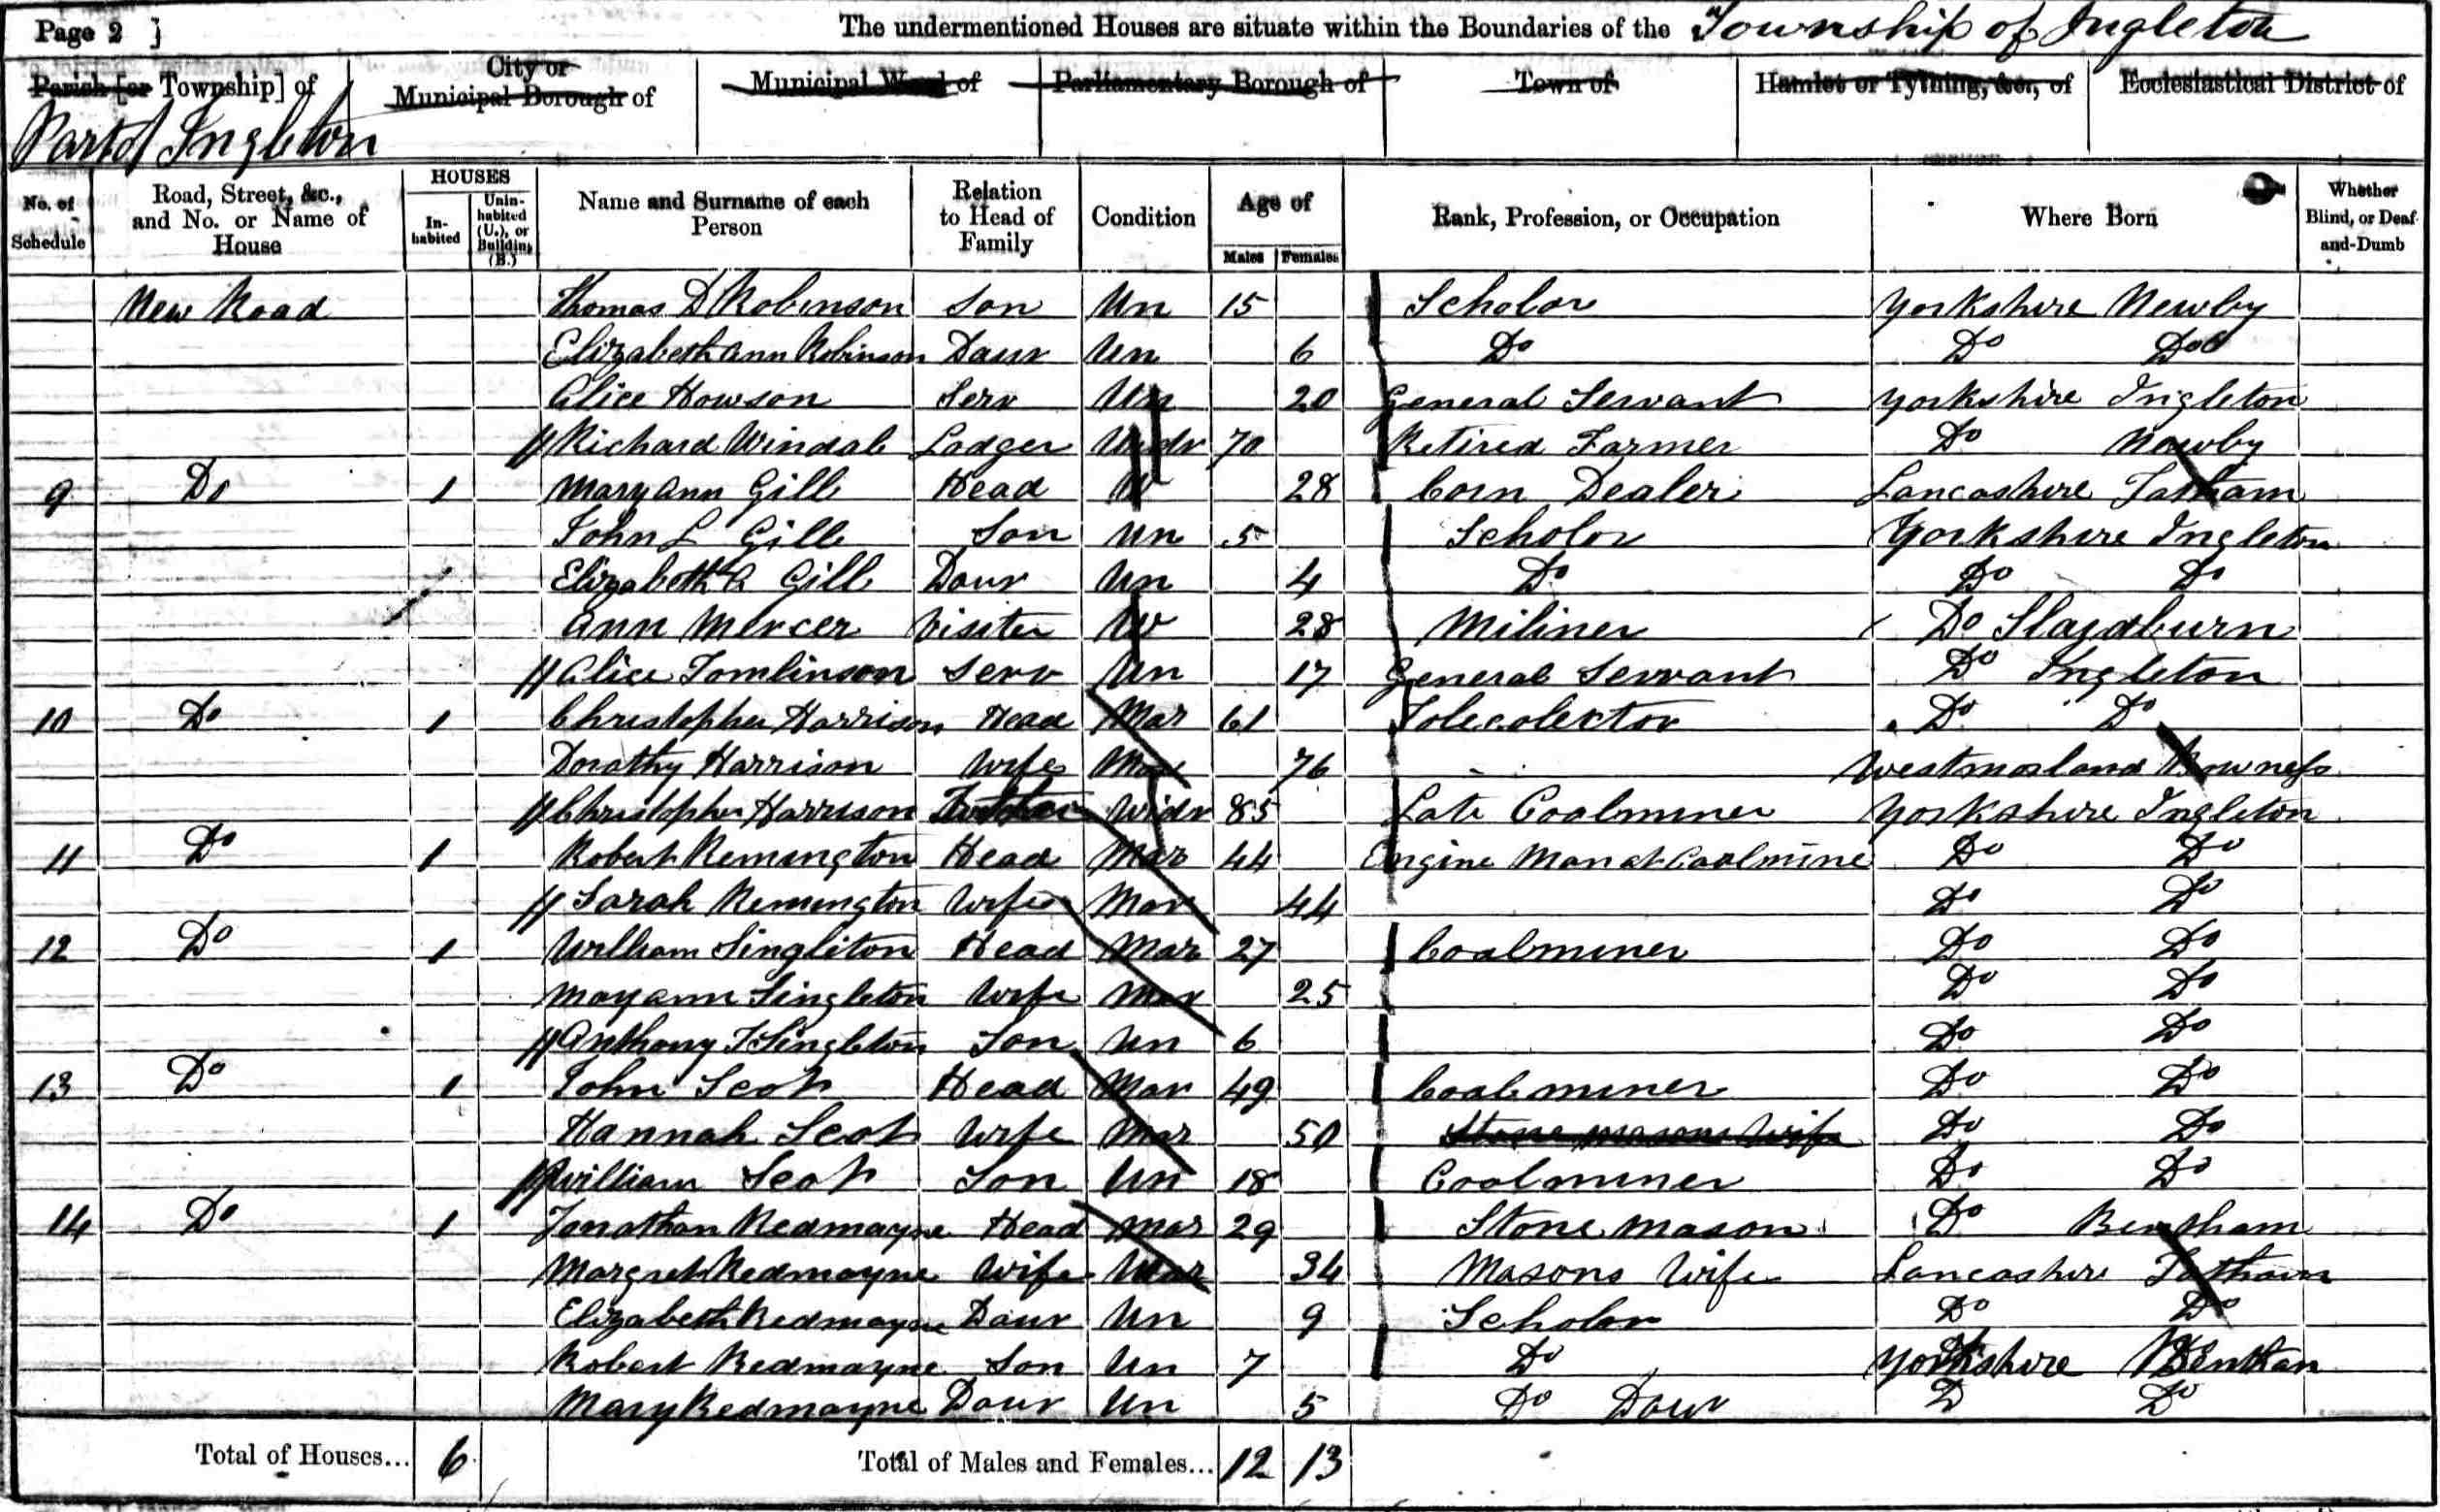 Page 2 ] The undermentioned Houses are situate within the Boundaries of the Township of Ingleton
Parish [or Township] of City or Municipal Borough of Municipal Ward of Parliamentary Borough of Town of Hamlet or Tything, &c., of Ecclesiastical District of
Part of Ingleton
No. of Schedule Road, Street, &c., and No. or Name of House HOUSES Inhabited Uninhabited (U.), or Building (B.) Name and Surname of each Person Relation to Head of Family Condition Age of Males Females Rank, Profession, or Occupation Where Born Whether Blind, or Deaf-and-Dumb
New Road Thomas D Robinson Son Un 15 Scholar Yorkshire Newby
Elizabeth Ann Robinson Daur Un 6 Do Do Do
Alice Howson Serv Un 20 General Servant Yorkshire Ingleton
// Richard Windal Lodger Widr 70 Retired Farmer Do Newby
9 Do 1 Mary Ann Gill Head W 28 Corn Dealer Lancashire Tatham
John L Gill Son Un 5 Scholar Yorkshire Ingleton
Elizabeth A Gill Daur Un 4 Do Do Do
Ann Mercer Visiter W 28 Miliner Do Slaidburn
// Alice Tomlinson Serv Un 17 General Servant Do Ingleton
10 Do 1 Christopher Harrison Head Mar 61 Tolecolector Do Do
Dorothy Harrison Wife Mar 76 Westmorland Bowness
// Christopher Harrison Widr 85 Late Coalminer Yorkshire Ingleton
11 Do 1 Robert Remington Head Mar 44 Engine Man at Coalmine Do Do
// Sarah Remington Wife Mar 44 Do Do
12 Do 1 William Singleton Head Mar 27 Coalminer Do Do
Mayann Singleton Wife Mar 25 Do Do
// Anthony Singleton Son Un 6 Do Do
13 Do 1 John Scot Head Mar 49 Coalminer Do Do
Hannah Scot Wife Mar 50 Stone masons Wife Do Do
// William Scot Son Un 18 Coalminer Do Do
14 Do 1 Jonathan Redmayne Head Mar 29 Stone Mason Do Bentham
Margret Redmayne Wife Mar 34 Masons Wife Lancashire Tatham
Elizabeth Redmayne Daur Un 9 Scholar Do Do
Robert Redmayne Son Un 7 Do Yorkshire Benthan
Mary Redmayne Daur Un 5 Do Daur D Do
Total of Houses... 6 Total of Males and Females... 12 13